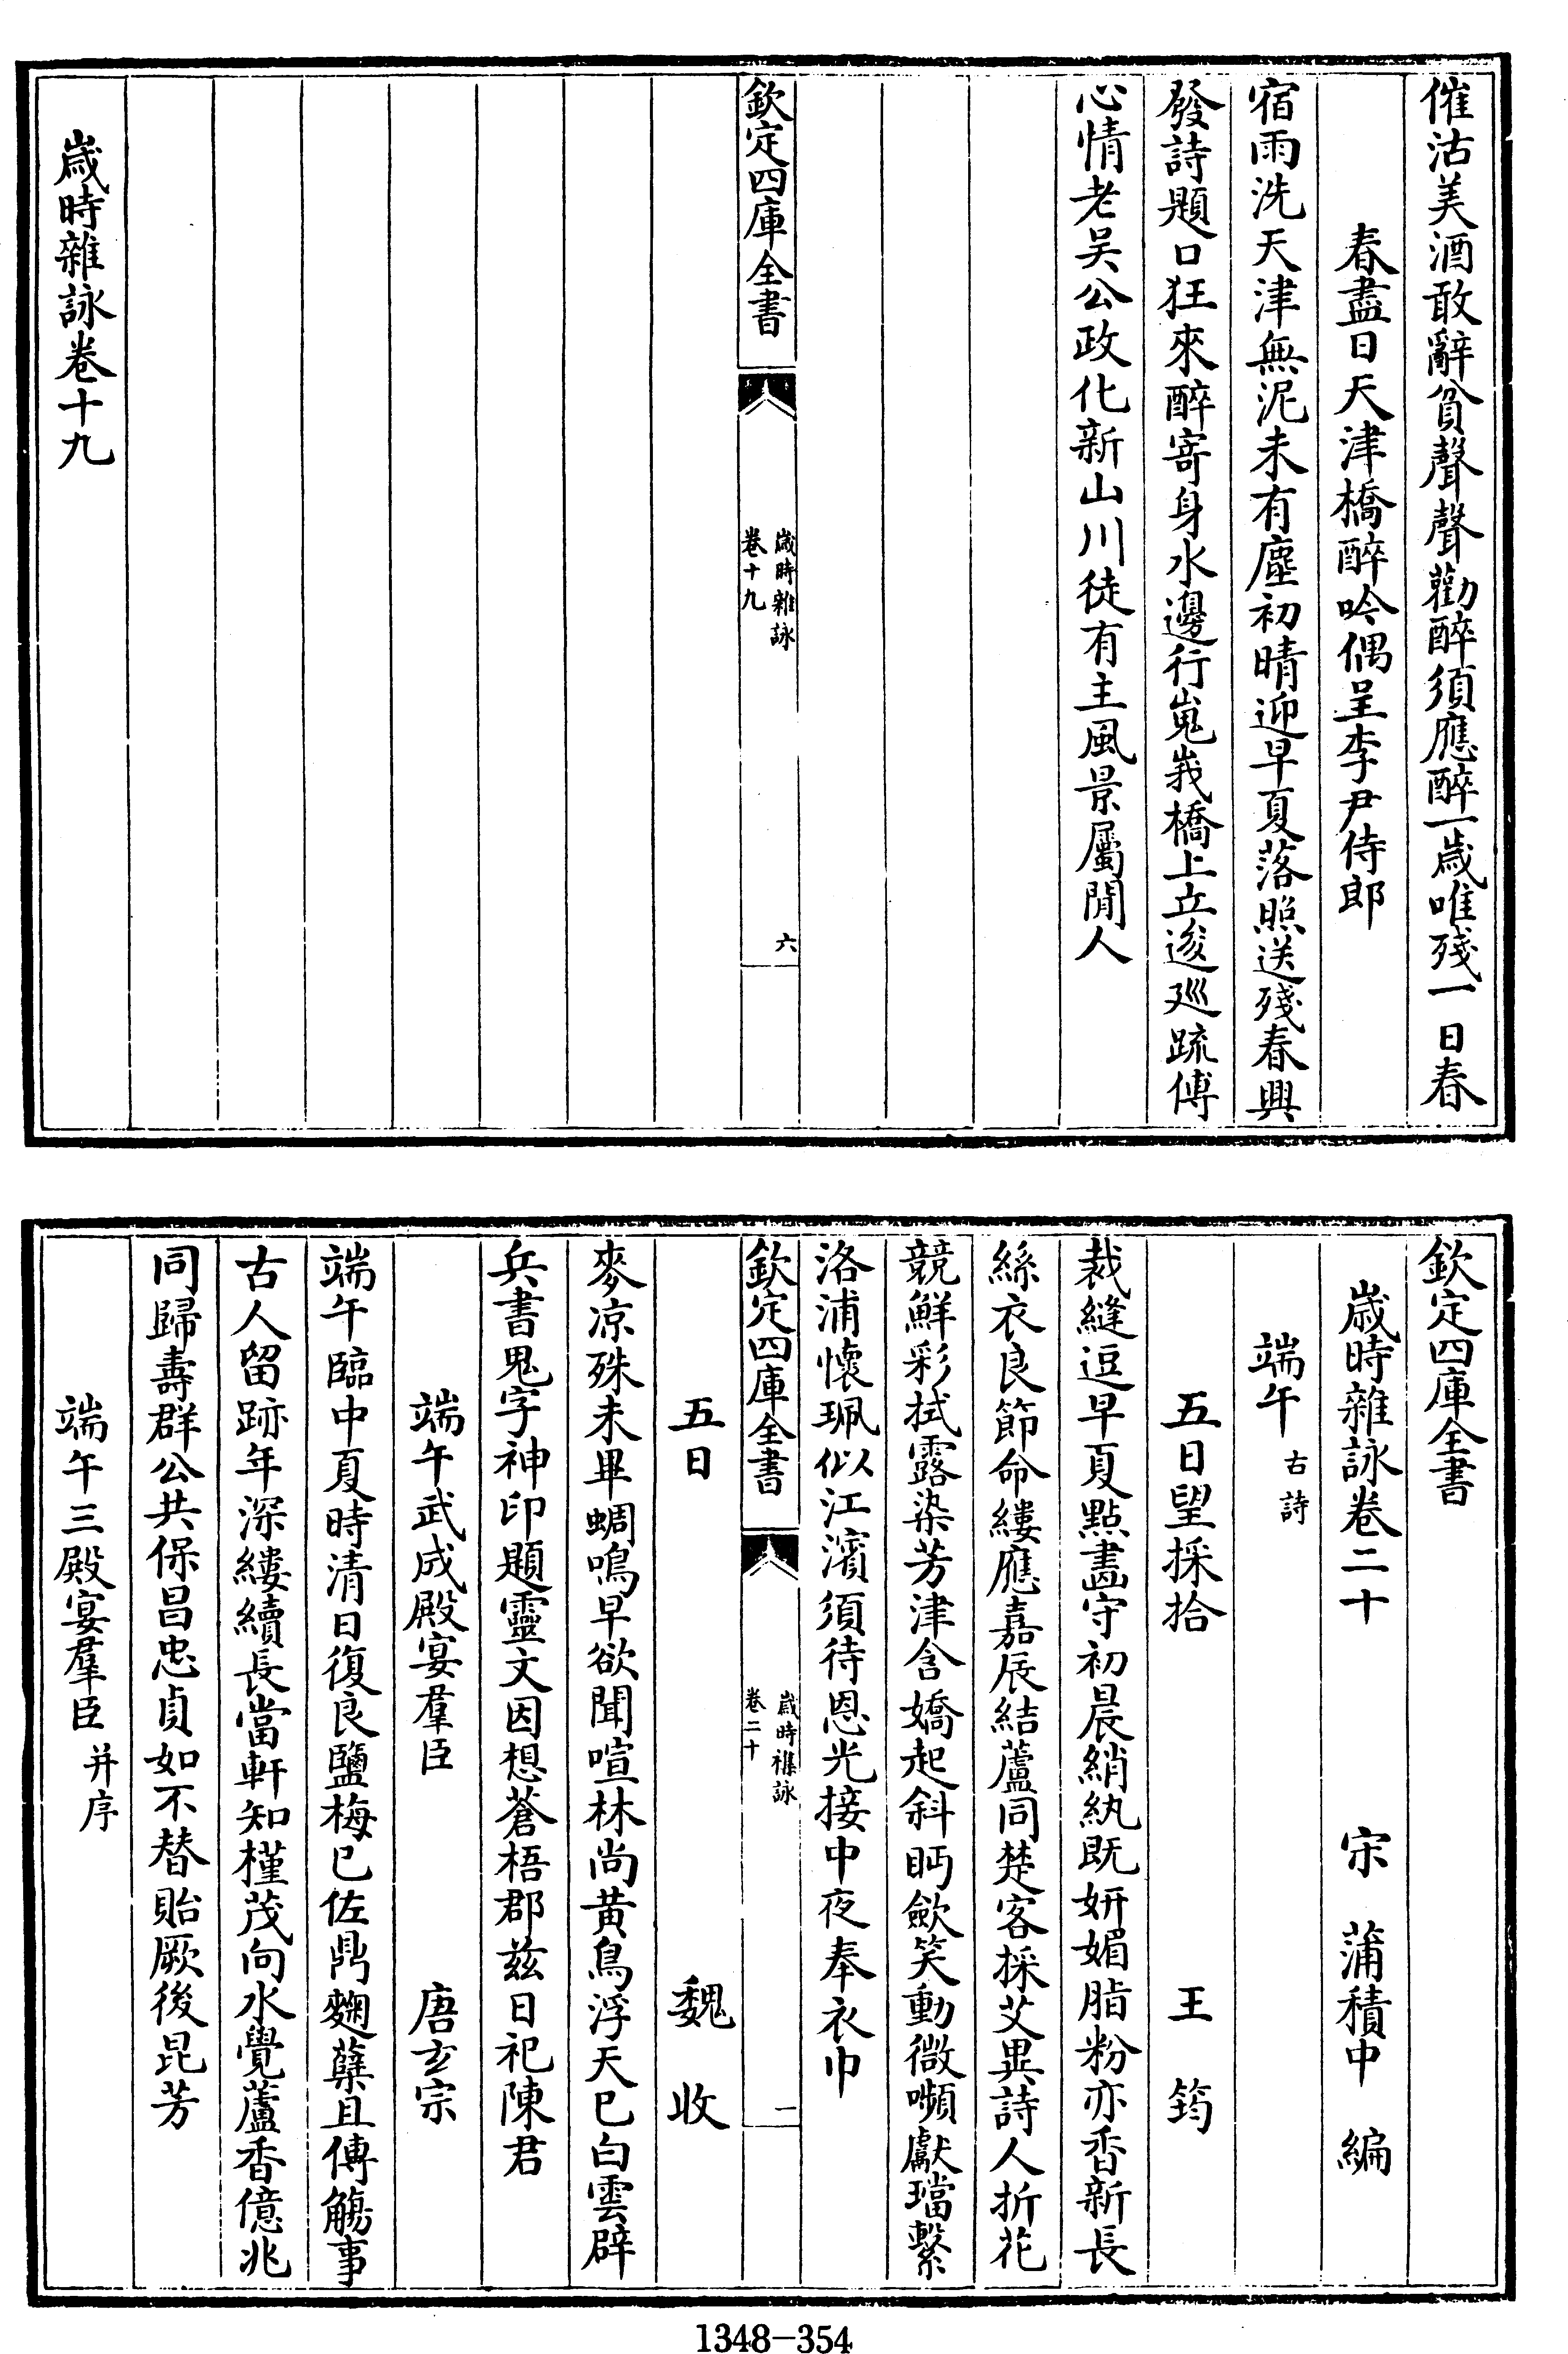 催沽美酒敢辭貧聲聲勸醉須應醉一歲唯殘一日春
春盡日天津橋醉吟偶呈李尹侍郎
宿雨洗天津無泥未有塵初晴迎早夏落照送殘春興
發詩題口狂來醉寄身水邊行嵬峩橋上立逡廵疏傅
心情老吳公政化新山川徒有主風景屬閒人
欽定四庫全書
歲時雜詠
卷十九
六
歲時雜詠卷十九
欽定四庫全書
歲時雜詠卷二十
宋 蒲積中 編
端午 古詩
五日望採拾
王筠
裁縫逗早夏點畫守初晨綃紈既妍媚脂粉亦香新長
絲衣良節命縷應嘉辰結蘆同楚客採艾異詩人折花
競鮮彩拭露染芳津含嬌起斜眄歛笑動微嚬獻璫繫
洛浦懷珮似江濱須待恩光接中夜奉衣巾
欽定四庫全書
歲時襍詠
卷二十
一
五日
魏收
麥凉殊未畢蜩鳴早欲聞喧林尚黄鳥浮天已白雲辟
兵書鬼字神印題靈文因想蒼梧郡兹日祀陳君
端午武成殿宴羣臣
唐玄宗
端午臨中夏時清日復良鹽梅已佐鼎麴蘖且傳觴事
古人留跡年深縷續長當軒知槿茂向水覺蘆香億兆
同歸壽群公共保昌忠貞如不替貽厥後昆芳
端午三殿宴羣臣 并序
1348-354